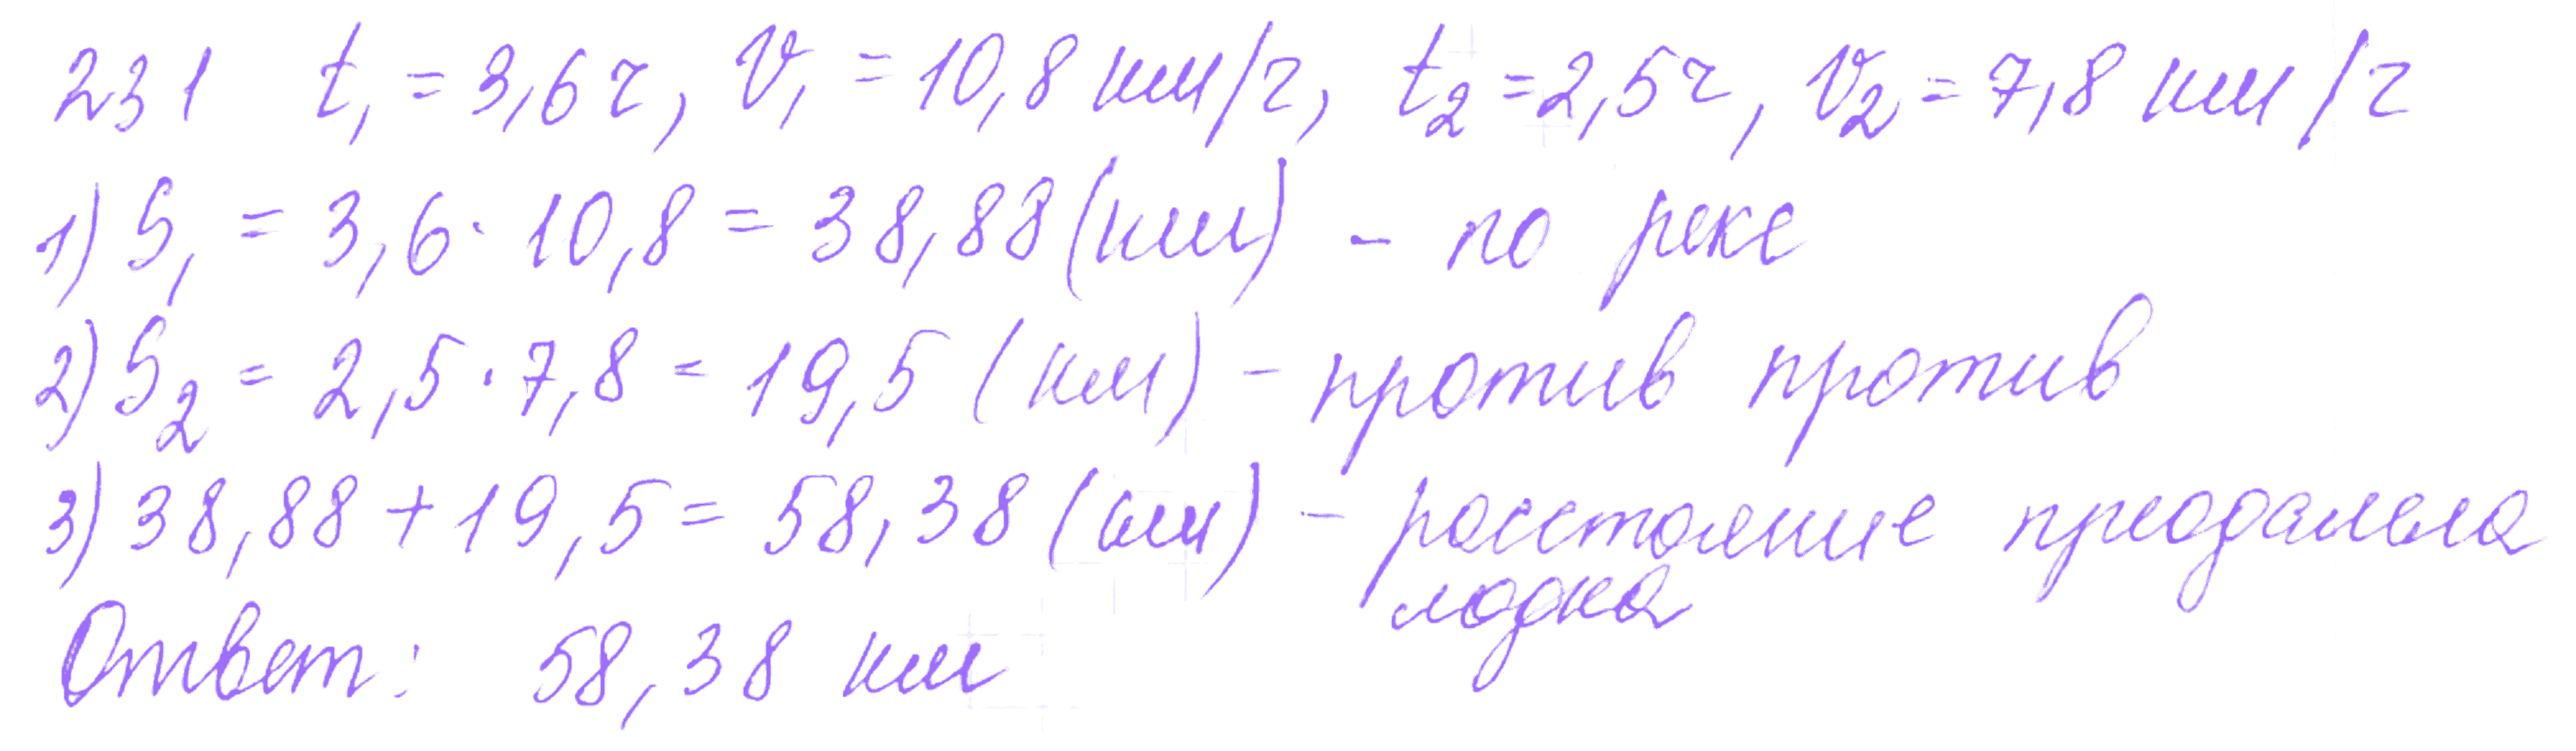 231 t₁ = 3,6 ч, V₁ = 10,8 км/ч, t₂ = 2,5 ч, V₂ = 7,8 км/ч
1) S₁ = 3,6 · 10,8 = 38,88 (км) - по реке
2) S₂ = 2,5 · 7,8 = 19,5 (км) - против против
3) 38,88 + 19,5 = 58,38 (км) - расстояние преодалела
лодка
Ответ: 58,38 км